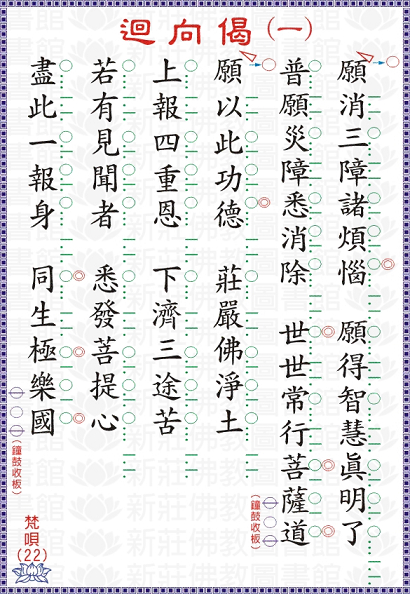 迴向偈(一)
願消三障諸煩惱　願得智慧眞明了
普願災障悉消除　世世常行菩薩道
(鐘鼓收板)
願以此功德　莊嚴佛淨土
上報四重恩　下濟三途苦
若有見聞者　悉發菩提心
盡此一報身　同生極樂國
(鐘鼓收板)
梵唄
(22)